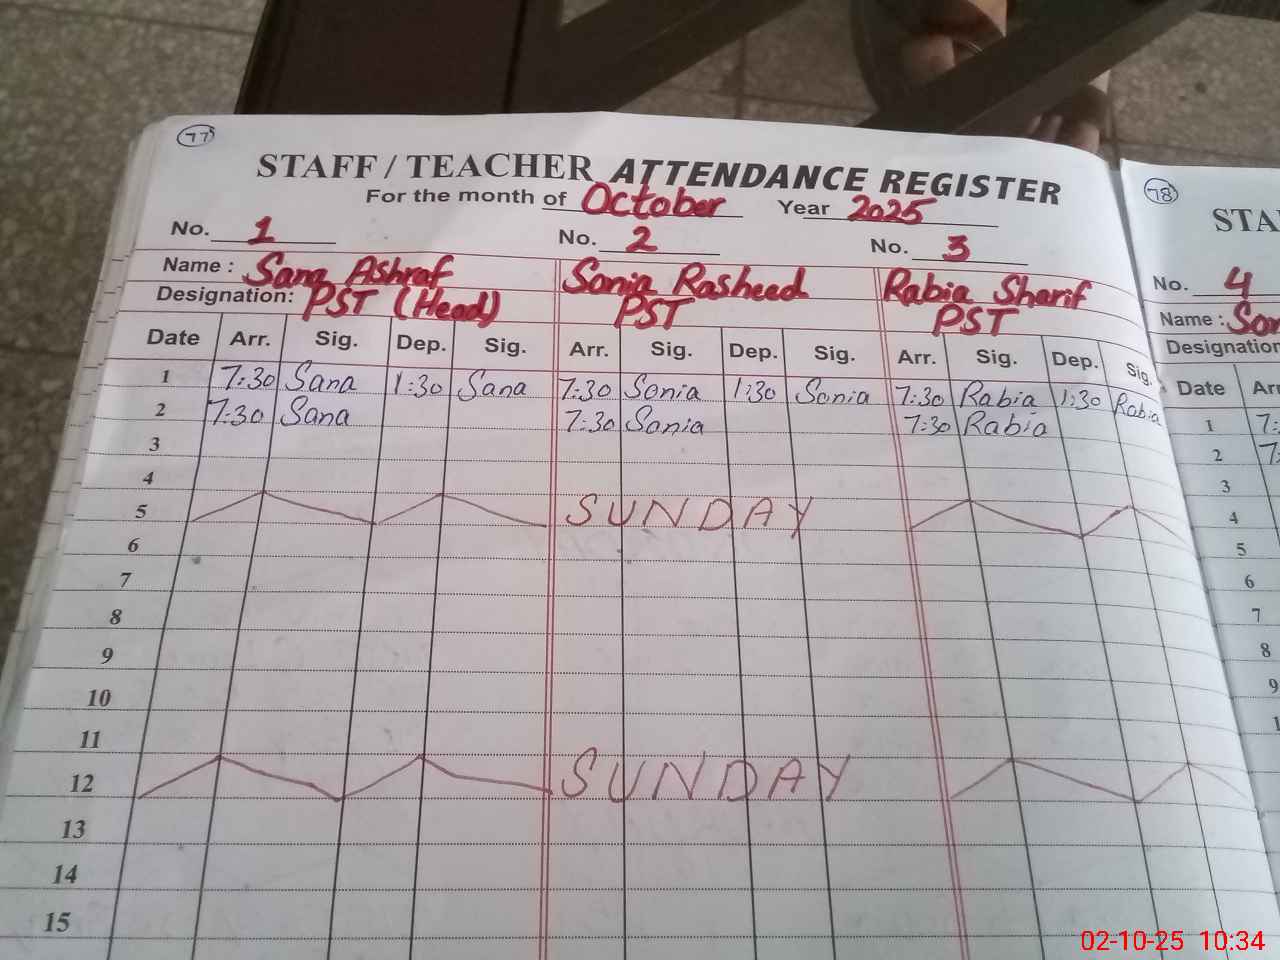 77
STAFF / TEACHER ATTENDANCE REGISTER
For the month of October Year 2025
No. 1 No. 2 No. 3
Name : Sana Ashraf Sonia Rasheed Rabia Sharif
Designation: PST (Head) PST PST
Date Arr. Sig. Dep. Sig. Arr. Sig. Dep. Sig. Arr. Sig. Dep. Sig.
1 7:30 Sana 1:30 Sana 7:30 Sonia 1:30 Sonia 7:30 Rabia 1:30 Rabia
2 7:30 Sana 7:30 Sonia 7:30 Rabia
3
4
5 SUNDAY
6
7
8
9
10
11
12 SUNDAY
13
14
15
78
STA
No. 4
Name :
Designation
Date
1
2
3
4
5
6
7
8
9
02-10-25 10:34